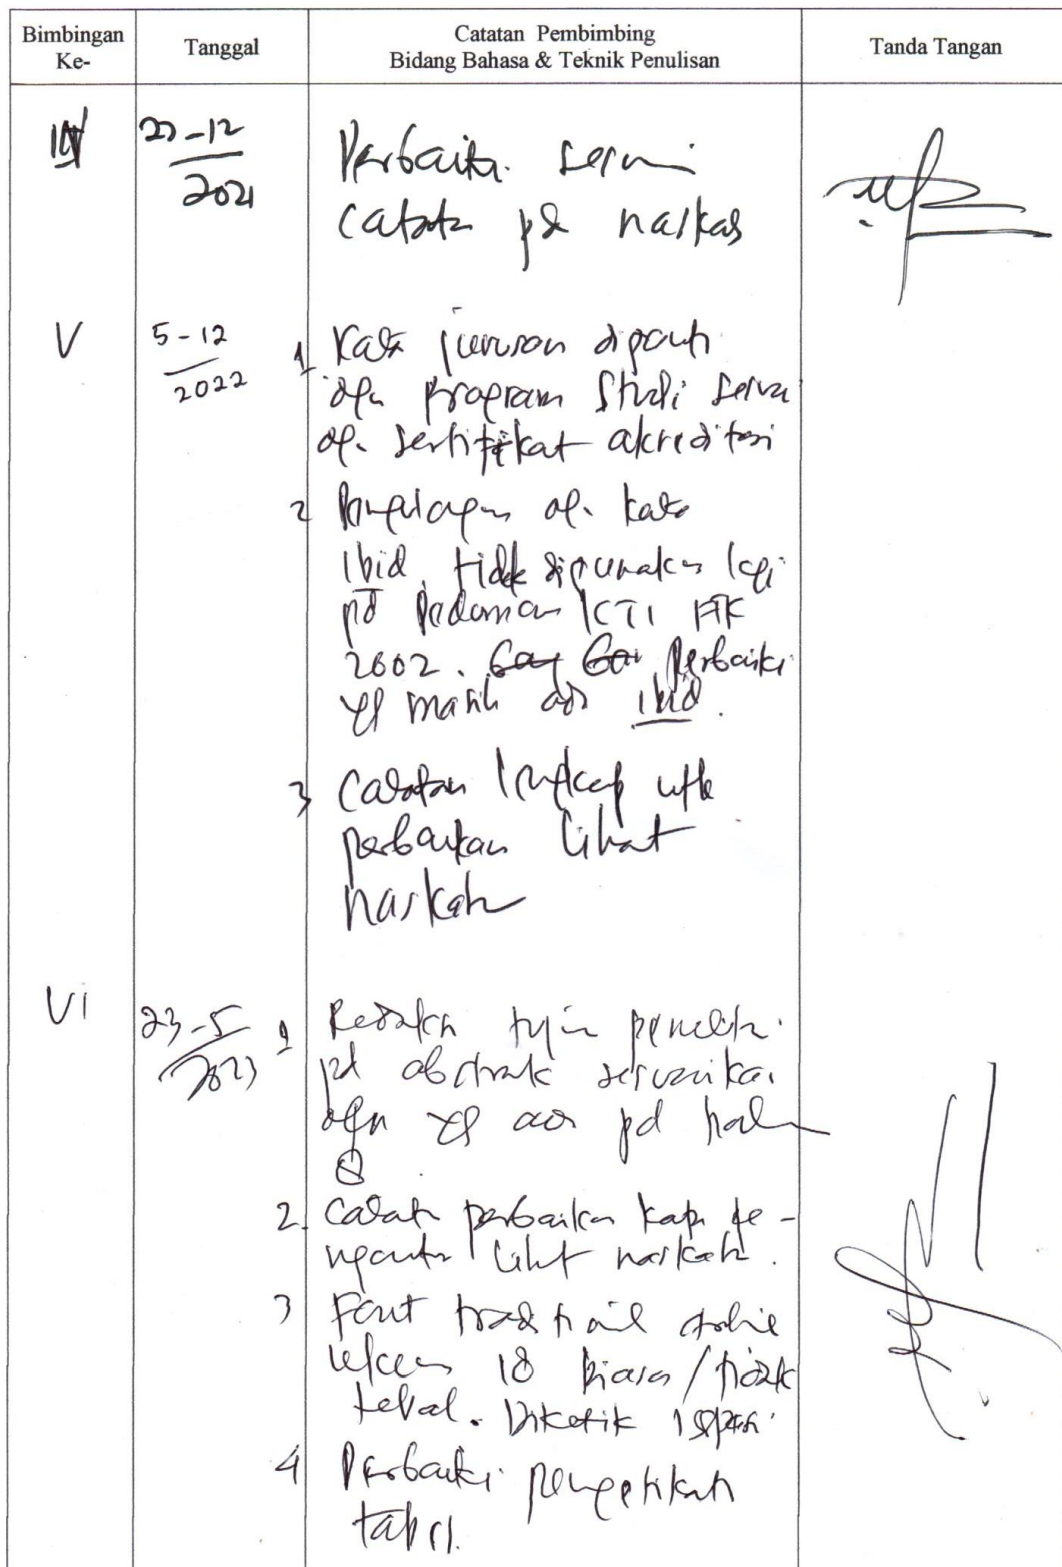 Bimbingan
Ke-
Tanggal
Catatan Pembimbing
Bidang Bahasa & Teknik Penulisan
Tanda Tangan
IV
-12
2021
Perbaiki sesuai
catatan pd naskah
V
5-12
2022
1 Kata jurusan diganti
dgn program Studi sesuai
dg. sertifikat akreditasi
2 Pengulangan dg. kata
Ibid, tidak digunakan lagi
pd Pedoman KTI FTK
2002. Perbaiki
yg masih ada ibid.
3 Catatan lengkap utk
perbaikan lihat
naskah
VI
23-5
2023
1 Redaksi tujuan penelit.
pd abstrak sesuaikan
dgn yg ada pd hal
8
2. Catatan perbaikan kata pe-
ngantar lihat naskah.
3 Font traditional arabic
ukuran 18 biasa/tidak
tebal. Diketik 1 spasi.
4 Perbaiki pengetikan
tabel.